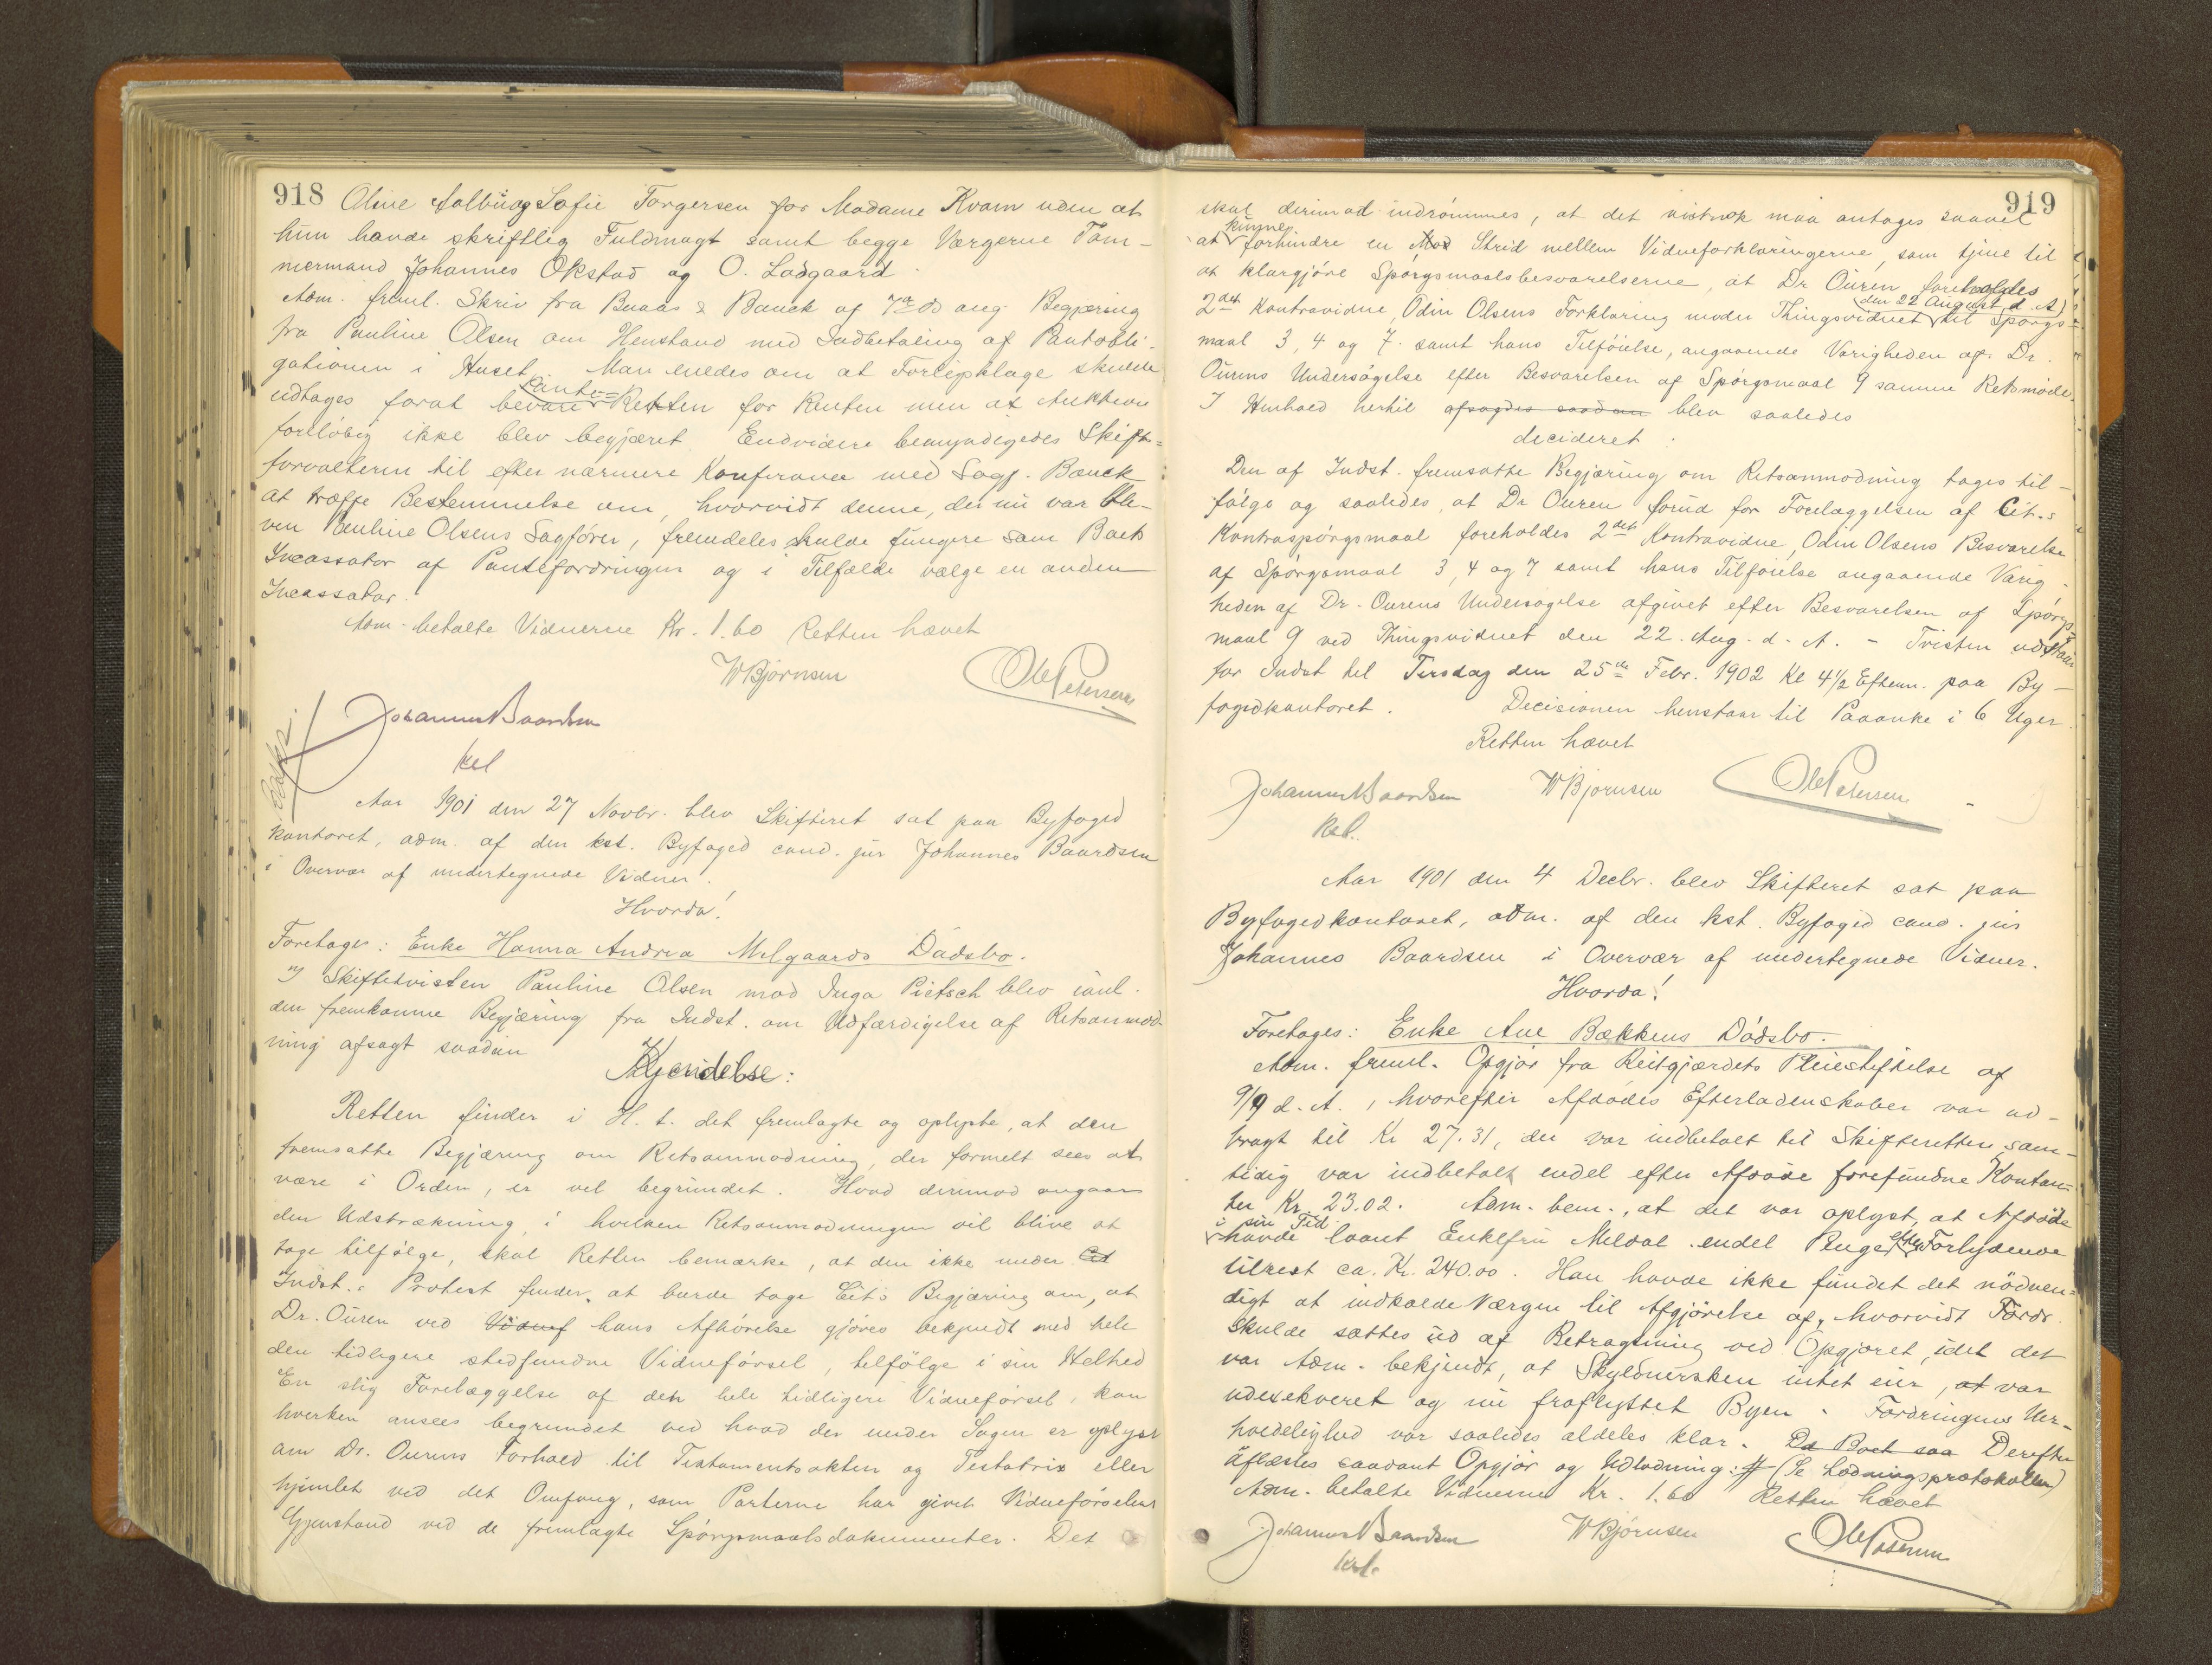 918
Oline Aalbu og Sofie Torgersen for Madame Kvam uden at
hun havde skriftlig Fuldmagt samt begge Værgerne Tøm-
mermand Johannes Okstad og O. Ladgaard.
Adm. freml. Skriv fra Buaas & Bauck af 7de ds ang. Begjæring
fra Pauline Olsen om Henstand med Indbetaling af Pantobli-
gationen i Huset. Man enedes om at Forligsklage skulde
Pante=
udtages forat bevare Retten for Renten men at Auktion
foreløbig ikke blev begjæret. Endvidere bemyndigedes Skifte=
forvalteren til efter nærmere Konferance med Sagf. Bauck
at træffe Bestemmelse om, hvorvidt denne, der nu var ble-
ven Pauline Olsens Sagfører, fremdeles skulde fungere som Boets
Incassator af Pantefordringen og i Tilfælde vælge en anden
Incassator.
Adm. betalte Vidnerne Kr. 1.60 Retten hævet
W Bjørnsen Ole Petersen
Johannes Baardsen
kst
Aar 1901 den 27 Novbr. blev Skifteret sat paa Byfoged
kontoret, adm. af den kst. Byfoged cand. jur Johannes Baardsen
i Overvær af undertegnede Vidner.
Hvorda!
Foretoges: Enke Hanna Andrea Melgaards Dødsbo.
I Skiftetvisten Pauline Olsen mod Inga Pietsch blev ianl.
den fremkomne Begjæring fra Indst. om Udfærdigelse af Retsanmod-
ning afsagt saadan
Kjendelse:
Retten finder i H. t. det fremlagte og oplyste, at den
fremsatte Begjæring om Retsanmodning, der formelt sees at
være i Orden, er vel begrundet. Hvad derimod angaar
den Udstrækning, i hvilken Retsanmodningen vil blive at
tage tilfølge, skal Retten bemærke, at den ikke under Cit
Indst.s Protest finder, at burde tage Cit.s Begjæring om, at
Dr. Ouren ved Vidnef hans Afhørelse gjøres bekjendt med hele
den tidligere stedfundne Vidneførsel, tilfølge i sin Helhed
En slig Forelæggelse af den hele tidligere Vidneførsel, kan
hverken ansees begrundet ved hvad der under Sagen er oplyst
om Dr. Ourens Forhold til Testamentsakten og Testatrix eller
hjemlet ved det Omfang, som Parterne har givet Vidneførselens
Gjenstand ved de fremlagte Spørgsmaalsdokumenter. Det
919
skal derimod indrømmes, at det vistnok maa antages saavel
kunne
at forhindre en Mod Strid mellem Vidneforklaringerne, som tjene til
at klargjøre Spørgsmaalsbesvarelserne, at Dr Ouren foreholdes
(den 22 August d. A)
2det Kontravidne, Odin Olsens Forklaring under Thingsvidnet til Spørgs=
maal 3, 4 og 7. samt hans Tilføielse, angaaende Varigheden af Dr.
Ourens Undersøgelse efter Besvarelsen af Spørgsmaal 9 samme Retsmøde.
I Henhold hertil afsagdes saadan blev saaledes
decideret:
Den af Indst. fremsatte Begjæring om Retsanmodning tages til-
følge og saaledes, at Dr Ouren forud for Forelæggelsen af Cit.s
Kontraspørgsmaal foreholdes 2det Kontravidne, Odin Olsens Besvarelse
af Spørgsmaal 3, 4 og 7 samt hans Tilføielse angaaende Varig-
heden af Dr. Ourens Undersøgelse afgivet efter Besvarelsen af Spørgs-
maal 9 ved Thingsvidnet den 22. Aug. d. A. - Tvisten udstaar
for Indst til Tirsdag den 25de Febr. 1902 Kl 4½ Efterm. paa By-
fogedkontoret. Decisionen henstaar til Paaanke i 6 Uger.
Retten hævet
Johannes Baardsen W Bjørnsen Ole Petersen
kst.
Aar 1901 den 4 Decbr. blev Skifteret sat paa
Byfogedkontoret, adm. af den kst. Byfoged cand. jur
Johannes Baardsen i Overvær af undertegnede Vidner.
Hvorda!
Foretoges: Enke Ane Bækkens Dødsbo.
Adm. freml. Opgjør fra Reitgjærdets Pleiestiftelse af
9/9 d. A., hvorefter Afdødes Efterladenskaber var ud-
bragt til Kr 27.31, der var indbetalt til Skifteretten, sam-
tidig var indbetalt endel efter Afdøde forefundne Kontan-
ter Kr. 23.02. Adm. bem., at det var oplyst, at Afdøde
i sin Tid
havde laant Enkefru Meldal endel Penge efter Forlydende
tilrest ca. Kr. 240.00. Han havde ikke fundet det nødven=
digt at indkalde Værgen til Afgjørelse af, hvorvidt Fordr.
skulde sættes ud af Betragtning ved Opgjøret, idet det
var Adm. bekjendt, at Skyldnersken intet eier, at var
udexekveret og nu fraflyttet Byen. Fordringens Uer-
holdelighed var saaledes aldeles klar. Da Boet saa Derefter
aflæstes saadant Opgjør og Udlodning: # (Se Lodningsprotokollen)
Adm. betalte Vidnerne Kr. 1.60 Retten hævet
Johannes Baardsen W Bjørnsen Ole Petersen
kst.